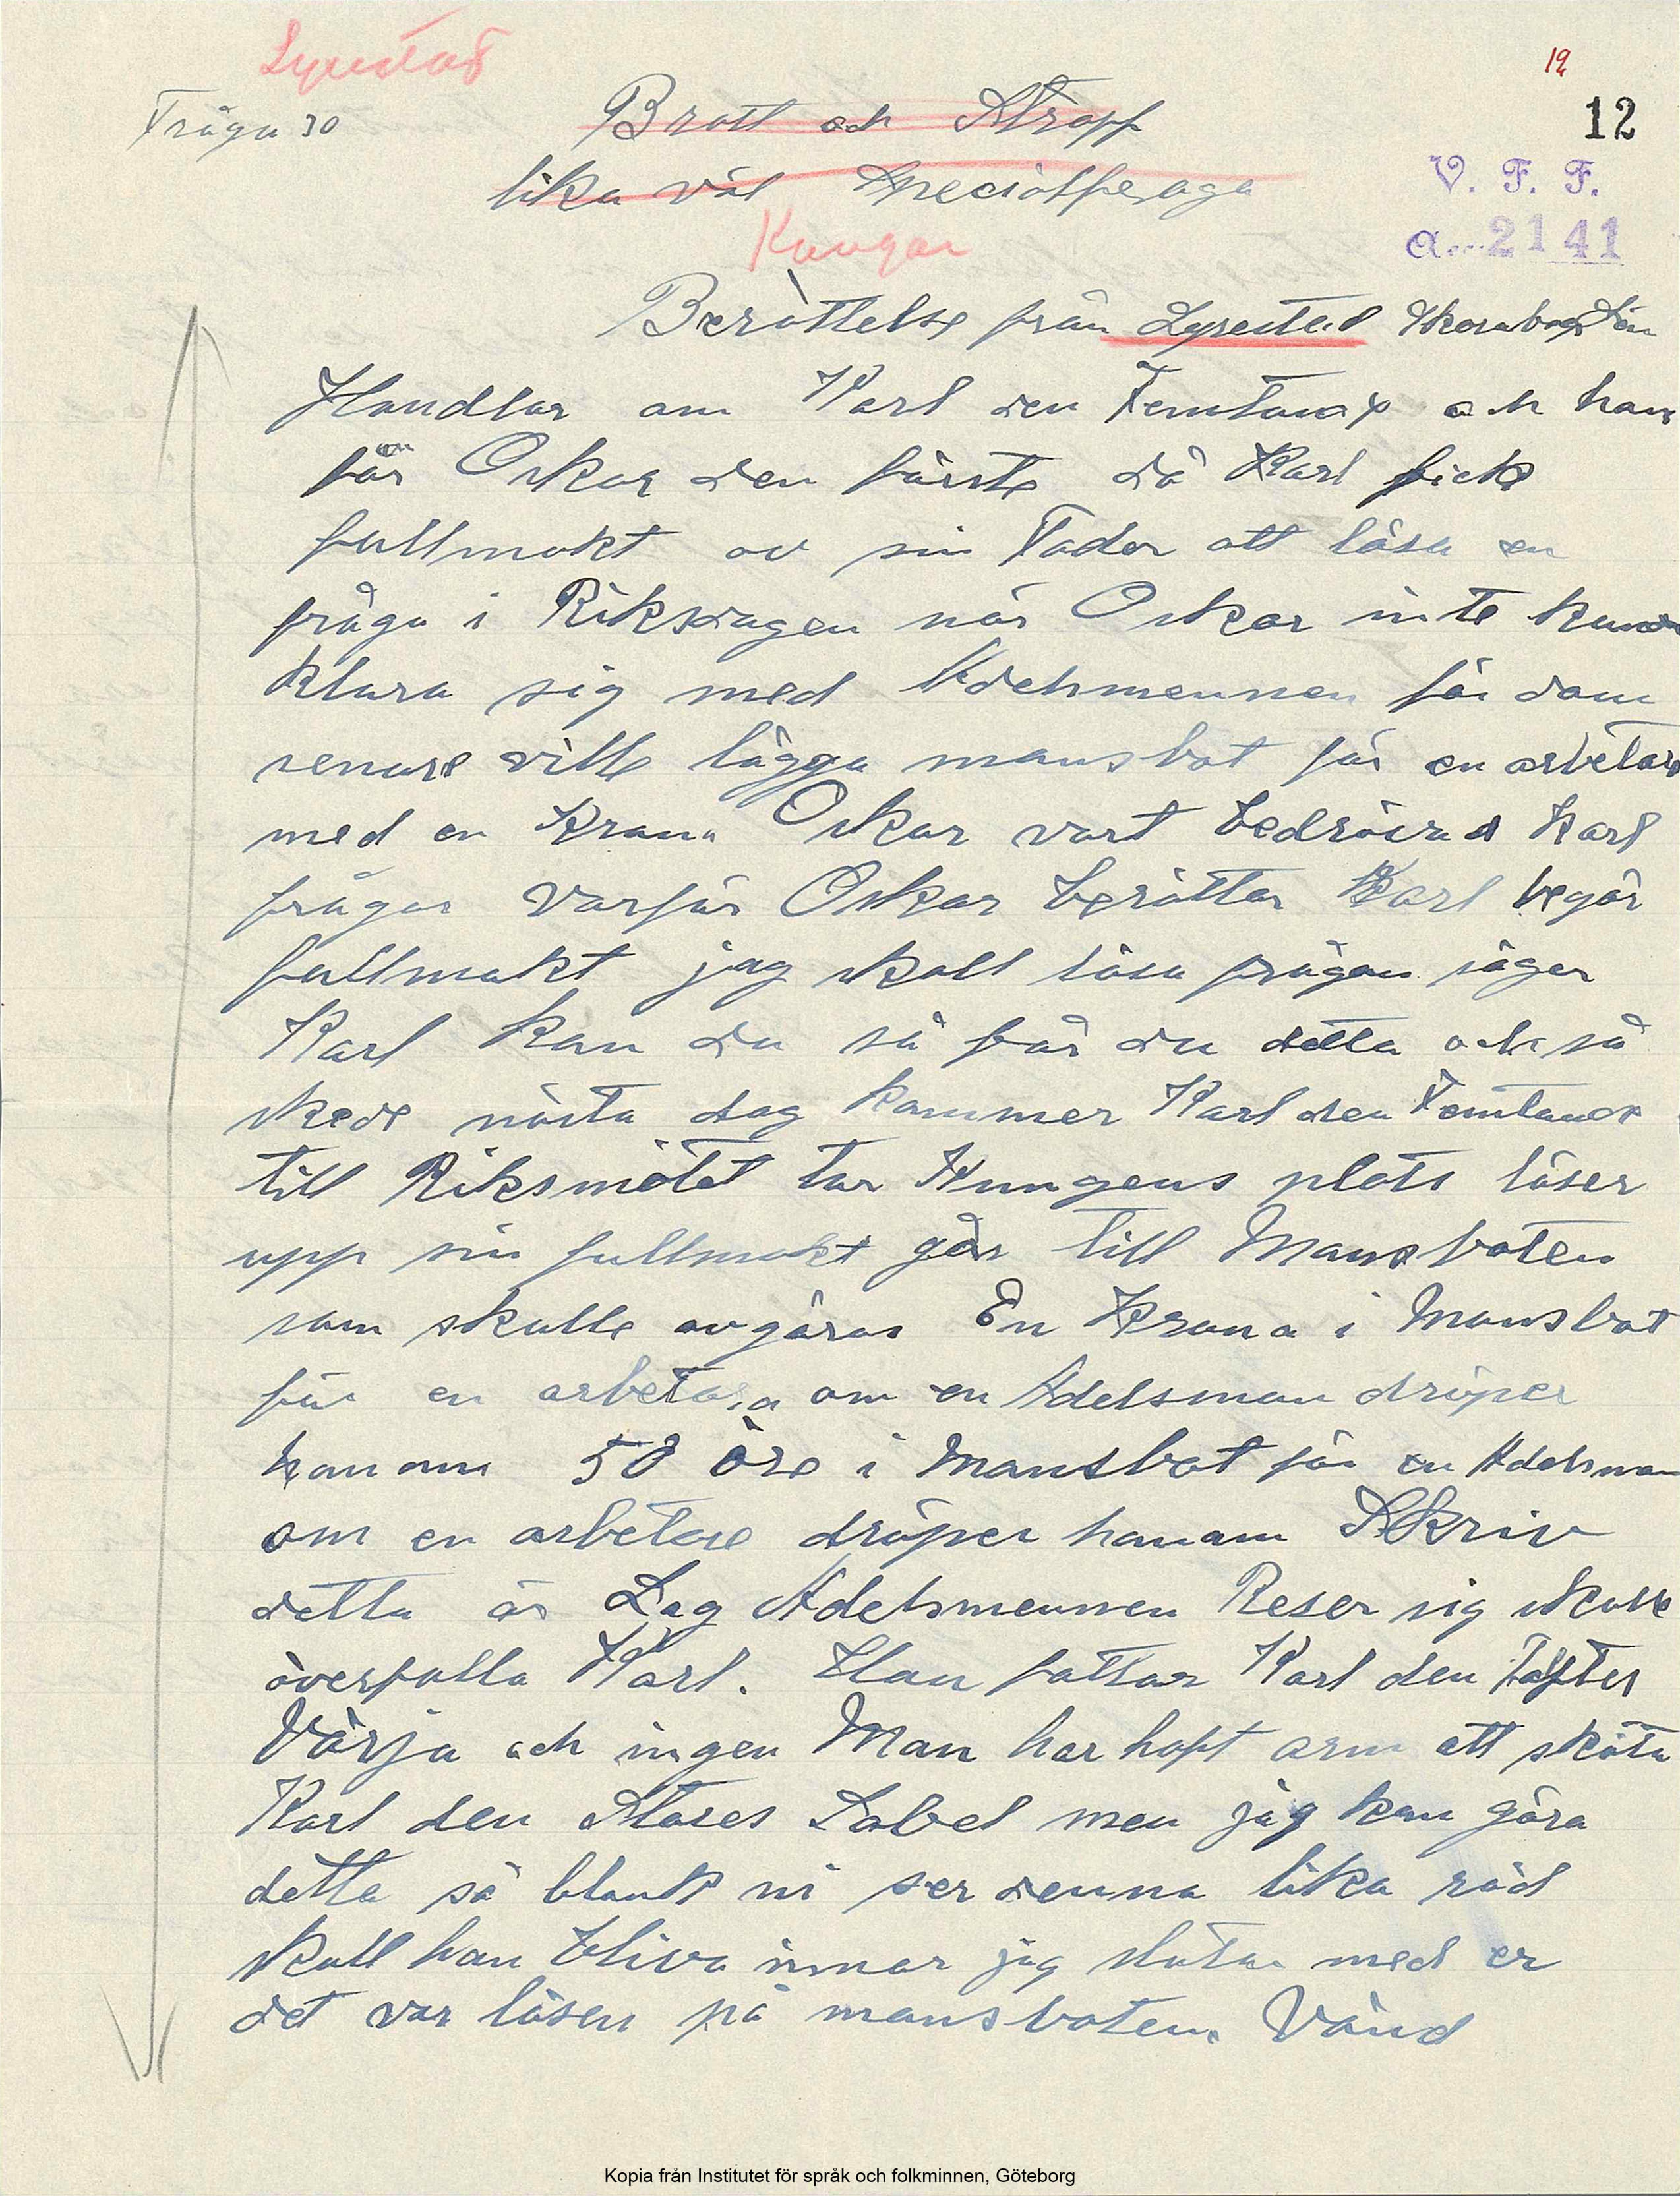 Lyrestad
12
Fråga 30
Brott och Straff
12
lika väl
V. F. F.
a... 2141
Kungar
Berättelse från Lyrestad Skarabogs Län
Handlar om Karl den Femtonde och hans
får Oskar den förste då Karl fick
fullmakt av sin Fader att lösa en
fråga i Riksdagen når Oskar inte kunde
klara sig med Adelsmennen för dom
senare ville lägga mansbot för en arbetare
med en Krona Oskar vart bedrövad Karl
frågar varför Oskar beråttar Karl begår
fullmakt jag skall lösa frågan säger
Karl kan du så får du detta och så
skede nåsta dag kommer Karl den Femtonde
till Riksmötet tar Kungens plats låser
upp sin fullmakt går till Mansboten
som skulle avgöras En Krona i Mansbot
för en arbetare om en Adelsman dråper
honom 50 öre i Mansbot för en Adelsman
om en arbetare dråper honom Skriv
detta är Lag Adelsmennen Reser sig skall
överfalla Karl. Han fattar Karl den
Värja och ingen Man har haft arm att sköta
Karl den Stores Sabel men jag kan göra
detta så blank ni ser denna lika röd
skall han bliva innar jag slutar med er
det var lösen på mansboten. Vänd
Kopia från Institutet för språk och folkminnen, Göteborg